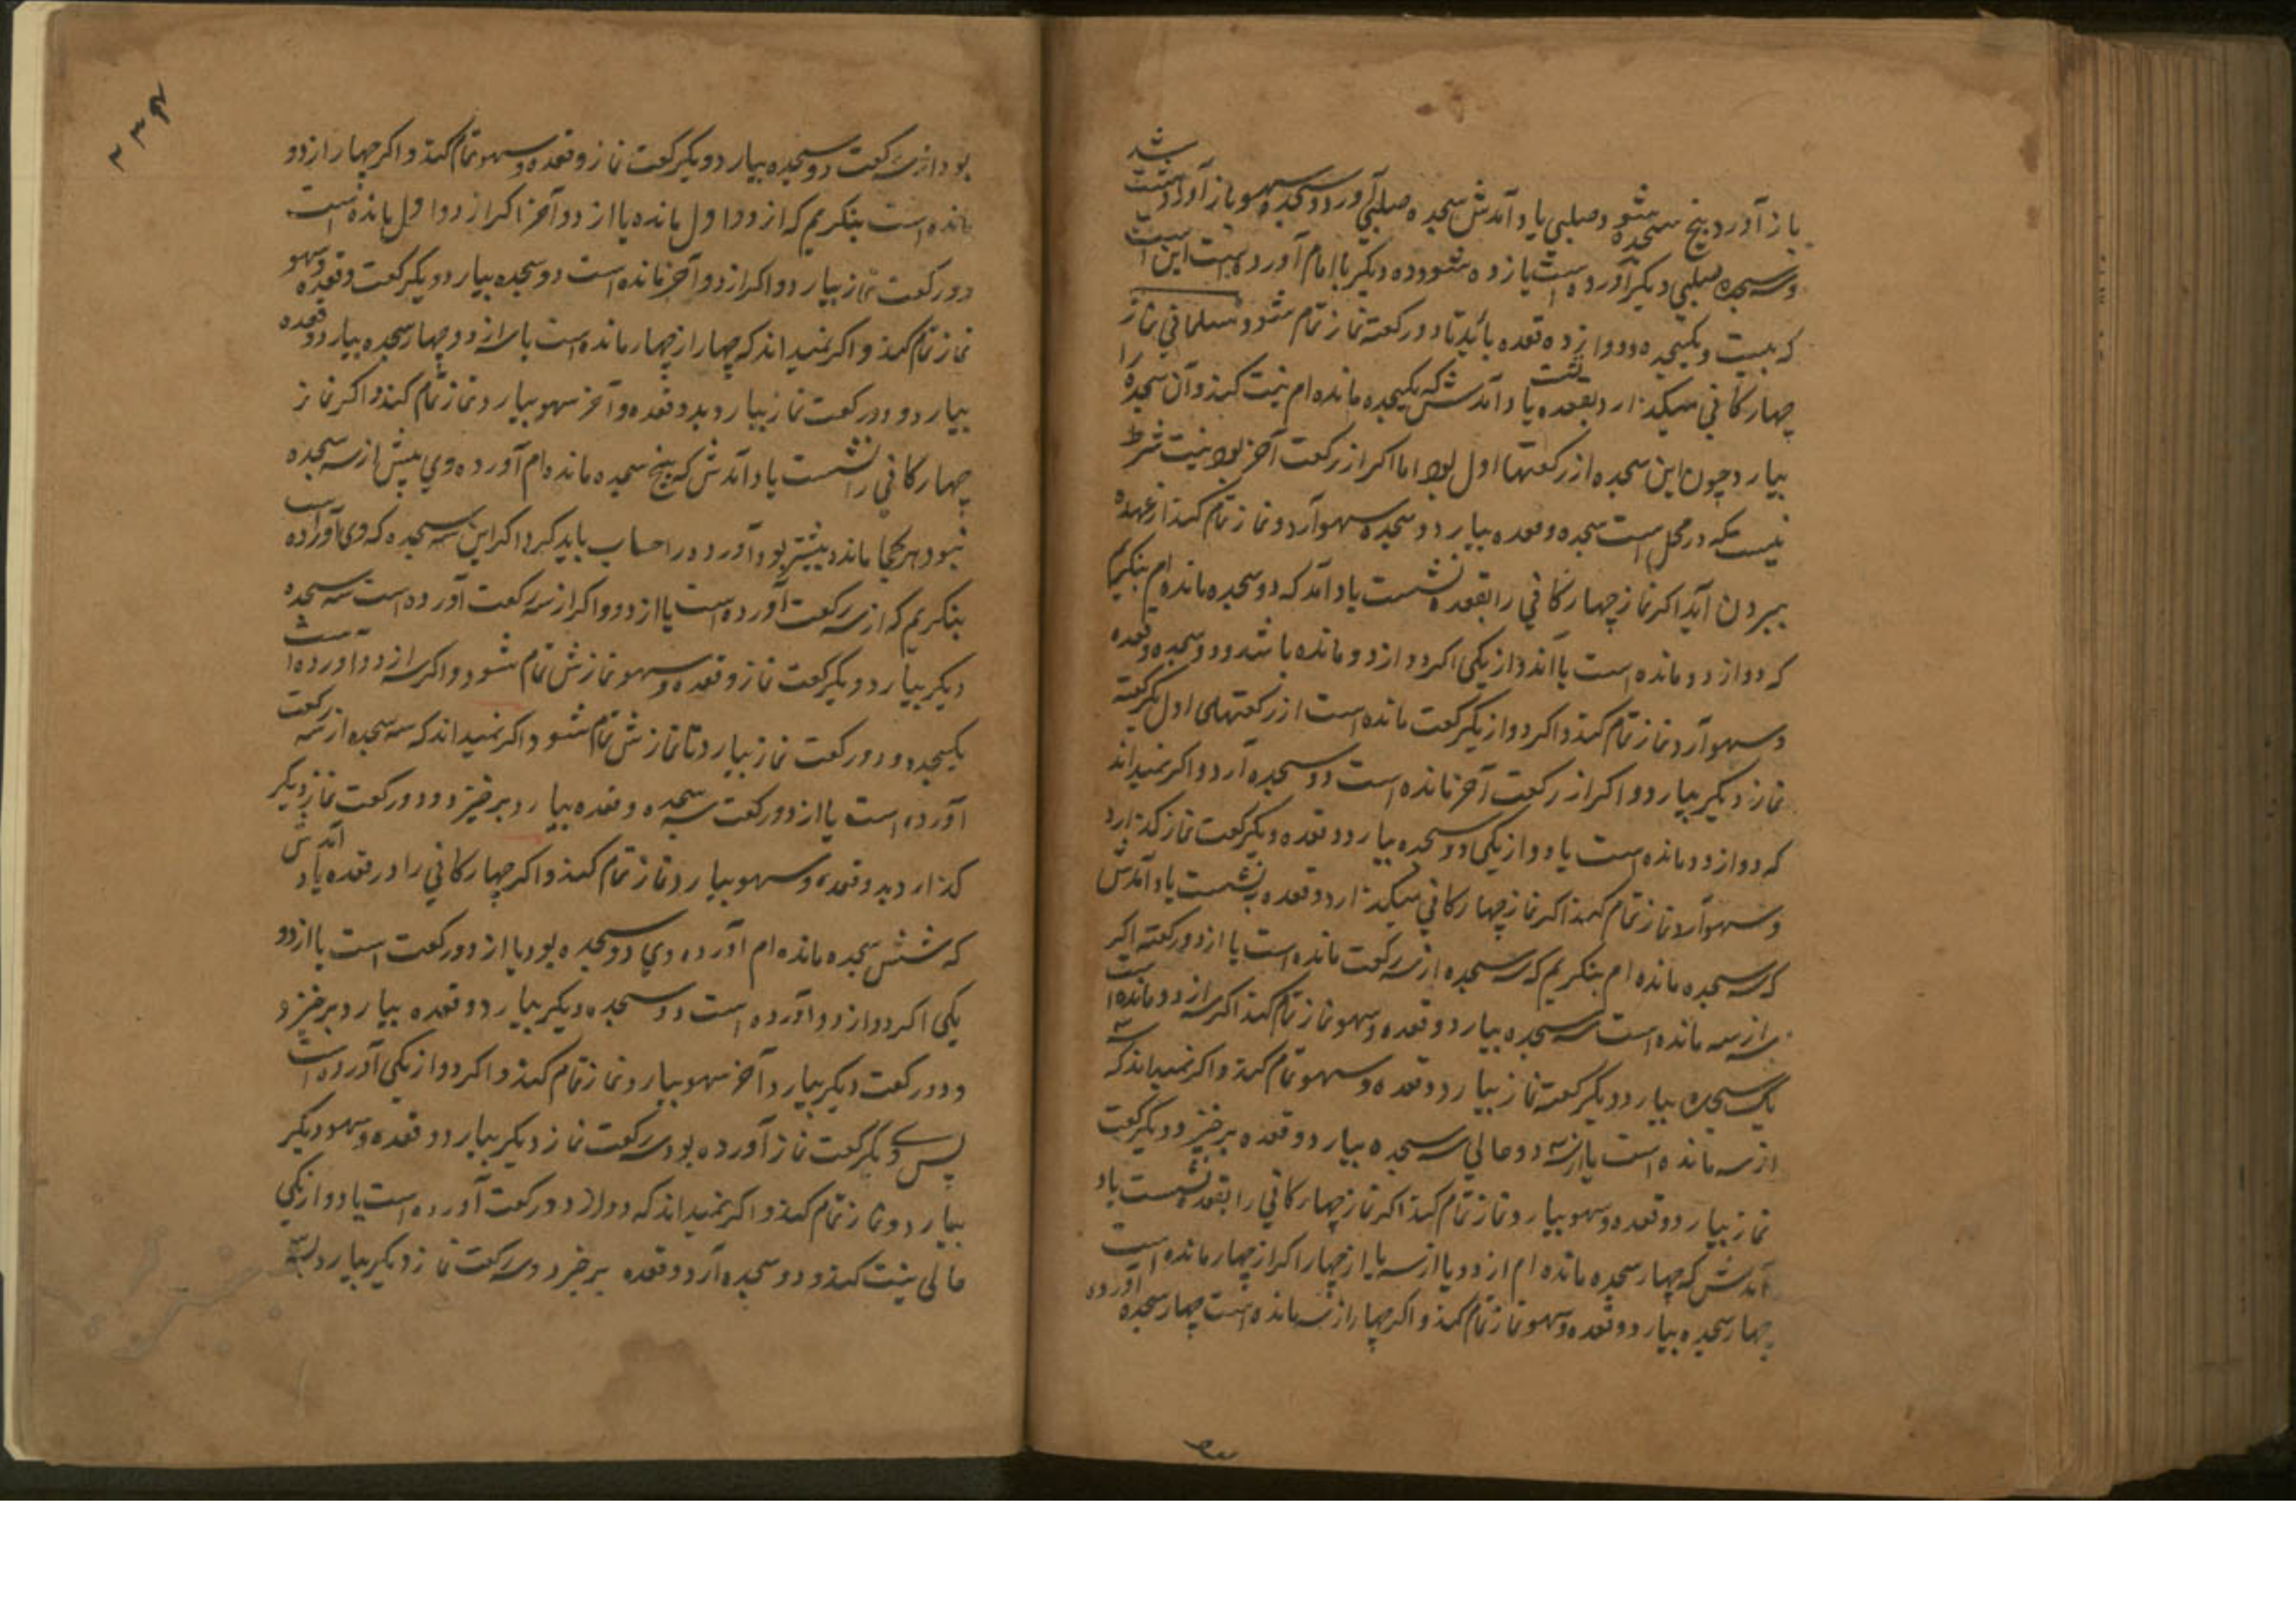 باز آورد پنج سجده شود و صلبی یاد آمدش سجده صلبی آورد و سجده سهو باز آورد هشت شد
و سه سجده صلبی دیگر آورده است یازده شود و ده دیگر با امام آورده است این است
که بیست و یکسجده و دوازده قعده باید تا دو رکعته نماز تمام شود و مسلمانی نماز
چهارکانی میکذارد بقعده یاد آمدش که یکسجده مانده ام نیت کند و آن سجده را
بیارد چون این سجده از رکعتها اول بود اما اکر از رکعت آخر بود نیت شرط
نیست که در محل است سجده و قعده بیارد و سجده سهو آرد و نماز تمام کند از عهده
بیرون آید اکر نماز چهارکانی را بقعده نشست یاد آمد که دو سجده مانده ام بنکریم
که دو از دو مانده است یا دو از یکی اکر دو از دو مانده باشد دو سجده و قعده
و سهو آرد و نماز تمام کند و اکر دو از یکرکعت مانده است از رکعتهای اول یکرکعته
نماز دیکر بیارد و اکر از رکعت آخر مانده است دو سجده آرد و اکر نمیداند
که دو از دو مانده است یا دو از یکی دو سجده بیارد و قعده و یکرکعت نماز کذارد
و سهو آرد نماز تمام کند اکر نماز چهارکانی میکذارد و قعده بنشست یاد آمدش
که سه سجده مانده ام بنکریم که سه سجده از سه رکعت مانده است یا از دو رکعته اکر
سه از سه مانده است سه سجده بیارد و قعده و سهو نماز تمام کند اکر سه از دو مانده است
یک سجده بیارد و یکرکعته نماز بیارد و قعده و سهو تمام کند و اکر نمیداند که سه
از سه مانده است یا از دو حالی سه سجده بیارد و قعده برخیزد و یکرکعت
نماز بیارد و قعده و سهو بیارد و نماز تمام کند اکر نماز چهارکانی را بقعده نشست یاد
آمدش که چهار سجده مانده ام از دو یا از سه یا از چهار اکر از چهار مانده است
چهار سجده بیارد و قعده و سهو نماز تمام کند و اکر چهار از سه مانده است چهار سجده آورده
بود از سه رکعت دو سجده بیارد و یکرکعت نماز و قعده و سهو تمام کند و اکر چهار از دو
مانده است بنکریم که از دو اول مانده یا از دو آخر اکر از دو اول مانده است
دو رکعت نماز بیارد و اکر از دو آخر مانده است دو سجده بیارد و یکرکعت و قعده و سهو
نماز تمام کند و اکر نمیداند که چهار از چهار مانده است یا سه از دو چهار سجده بیارد و قعده
بیارد و دو رکعت نماز بیارد بدو قعده و آخر سهو بیارد و نماز تمام کند و اکر نماز
چهارکانی را نشست یاد آمدش که پنج سجده مانده ام آورده وی بیش از سه سجده
نبود هر کجا مانده بیشتر بود آورده را حساب باید کرد اکر این سه سجده که وی آورده است
بنکریم که از سه رکعت آورده است یا از دو و اکر از سه رکعت آورده است سه سجده
دیکر بیارد و یکرکعت نماز و قعده و سهو نمازش تمام شود و اکر سه از دو آورده است
یکسجده و دو رکعت نماز بیارد تا نمازش تمام شود و اکر نمیداند که سه سجده از سه رکعت
آورده است یا از دو رکعت سه سجده و قعده بیارد برخیزد و دو رکعت نماز دیکر
کذارد بدو قعده و سهو بیارد و نماز تمام کند و اکر چهارکانی را در قعده یاد آمدش
که شش سجده مانده ام آورده وی دو سجده بود یا از دو رکعت است یا از دو
یکی اکر دو از دو آورده است دو سجده دیکر بیارد و قعده بیارد برخیزد
و دو رکعت دیکر بیارد و آخر سهو بیارد و نماز تمام کند و اکر دو از یکی آورده است
پس وی یکرکعت نماز آورده بود سه رکعت نماز دیکر بیارد دو قعده و سهو دیکر
بیارد و نماز تمام کند و اکر نمیداند که دو از دو رکعت آورده است یا دو از یکی
حالی نیت کند و دو سجده آرد و قعده برخیزد و سه رکعت نماز دیکر بیارد